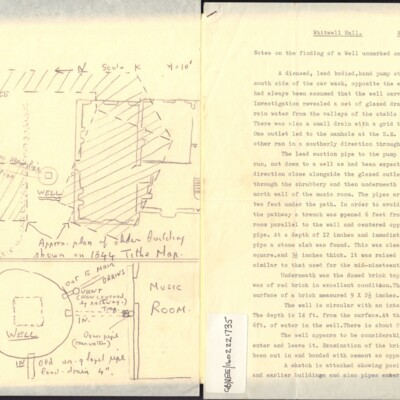 N Scale K 4'=10'
WELL
Approx. plan of older Building
shown on 1844 Tithe Map.
OUT TO MAIN
DRAINS
VENT
(now covered
by pathway)
Trap
IN.
MUSIC
ROOM.
WELL
Open pipe
IN
Old un-glazed pipe
Land-drain 4".
Whitwell Hall.
Notes on the finding of a Well unmarked on
A disused, lead bodied, hand pump st
south side of the car wash, opposite the e
had always been assumed that the well serv
Investigation revealed a set of glazed drai
rain water from the valleys of the stable
There was also a small drain with a grid t
One outlet led to the manhole at the S.E.
other ran in a southerly direction through
The lead suction pipe to the pump
run, not down to a well as had been expecte
direction close alongside the glazed outle
through the shrubbery and then underneath
north wall of the music room. The pipes ar
two feet under the path. In order to avoid
the pathway a trench was opened 6 feet from
room parallel to the wall and centered opp
pipe. At a depth of 22 inches and immediat
pipe a stone slab was found. This was clea
square and 3½ inches thick. It was raised
similar to that used for the mid-nineteent
Underneath was the domed brick top
was of red brick in excellent condition. Th
surface of a brick measured 9 X 2½ inches.
The well is circular with an inter
The depth is 14 ft. from the surface. At th
6ft. of water in the well. There is about 7
The well appears to be considerable
enter and leave it. Examination of the bric
been cut in and bonded with cement as oppos
A sketch is attached showing posi
and earlier buildings and also pipes enter